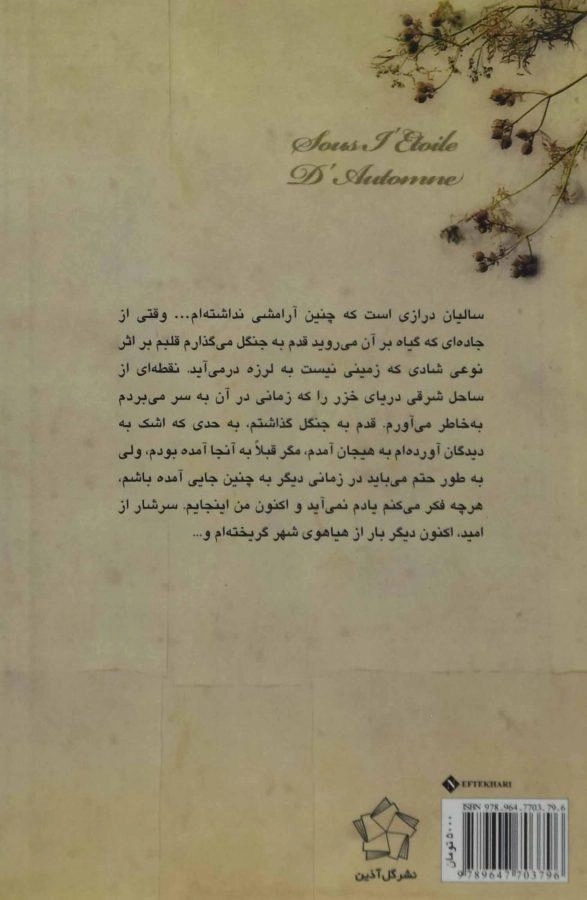 Sous I'Etoile
D'Automne
سالیان درازی است که چنین آرامشی نداشته‌ام... وقتی از
جاده‌ای که گیاه بر آن می‌روید قدم به جنگل می‌گذارم قلبم بر اثر
نوعی شادی که زمینی نیست به لرزه درمی‌آید. نقطه‌ای از
ساحل شرقی دریای خزر را که زمانی در آن به سر می‌بردم
به‌خاطر می‌آورم. قدم به جنگل گذاشتم، به حدی که اشک به
دیدگان آورده‌ام به هیجان آمدم، مگر قبلاً به آنجا آمده بودم، ولی
به طور حتم می‌باید در زمانی دیگر به چنین جایی آمده باشم،
هرچه فکر می‌کنم یادم نمی‌آید و اکنون من اینجایم. سرشار از
امید، اکنون دیگر بار از هیاهوی شهر گریخته‌ام و...
N EFTEKHARI
ISBN 978.964.7703.79.6
۵۰۰۰ تومان
9789647703796
نشر گل آذین